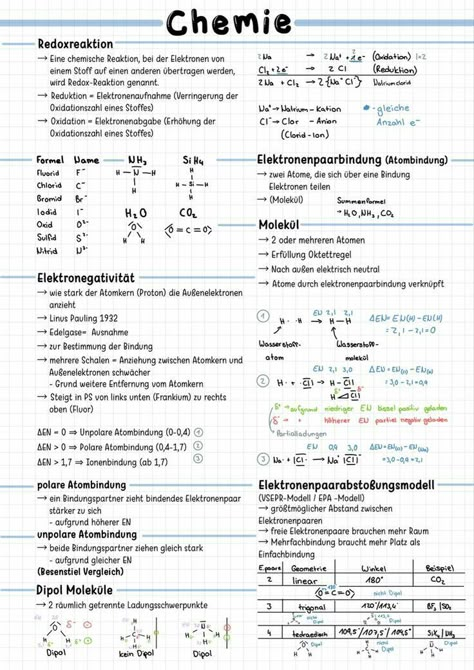 Chemie
Redoxreaktion
→ Eine chemische Reaktion, bei der Elektronen von
einem Stoff auf einen anderen übertragen werden,
wird Redox-Reaktion genannt.
→ Reduktion = Elektronenaufnahme (Verringerung der
Oxidationszahl eines Stoffes)
→ Oxidation = Elektronenabgabe (Erhöhung der
Oxidationszahl eines Stoffes)
2Na → 2Na⁺ + 2·1e⁻ (Oxidation) 1·2
Cl₂ + 2e⁻ → 2Cl (Reduktion)
2Na + Cl₂ → 2{Na⁺Cl⁻} Natriumchlorid
Na⁺ → Natrium-Kation
Cl⁻ → Clor-Anion
(Clorid-Ion)
gleiche
Anzahl e⁻
Formel Name NH₃ SiH₄
Fluorid F⁻
Chlorid C⁻
Bromid Br⁻
Iodid I⁻ H₂O CO₂
Oxid O²⁻
Sulfid S²⁻
Nitrid N³⁻
H – N – H
H
H
H – Si – H
H
O
H H
⟨O = C = O⟩
Elektronenpaarbindung (Atombindung)
→ zwei Atome, die sich über eine Bindung
Elektronen teilen
→ (Molekül) Summenformel
→ H₂O, NH₃, CO₂
Molekül
→ 2 oder mehreren Atomen
→ Erfüllung Oktettregel
→ Nach außen elektrisch neutral
→ Atome durch elektronenpaarbindung verknüpft
Elektronegativität
→ wie stark der Atomkern (Proton) die Außenelektronen
anzieht
→ Linus Pauling 1932
→ Edelgase= Ausnahme
→ zur Bestimmung der Bindung
→ mehrere Schalen = Anziehung zwischen Atomkern und
Außenelektronen schwächer
- Grund weitere Entfernung vom Atomkern
→ Steigt in PS von links unten (Frankium) zu rechts
oben (Fluor)
ΔEN = 0 ⇒ Unpolare Atombindung (0-0,4) 1
ΔEN > 0 ⇒ Polare Atombindung (0,4-1,7) 2
ΔEN > 1,7 ⇒ Ionenbindung (ab 1,7) 3
1 EN 2,1 2,1 ΔEN = EN(H) - EN(H)
H · · H → H – H = 2,1 - 2,1 = 0
Wasserstoff- Wasserstoff-
atom molekül
EN 2,1 3,0
2 H · + · Cl → H – Cl = 3,0 - 2,1 = 0,9
H Cl
δ⁺ → aufgrund niedriger EN partiel positiv geladen
δ⁻ → höherer EN partiel negativ geladen
Partialladungen
EN 0,9 3,0
3 Na · + · Cl → Na⁺ Cl⁻
polare Atombindung
→ ein Bindungspartner zieht bindendes Elektronenpaar
stärker zu sich
- aufgrund höherer EN
unpolare Atombindung
→ beide Bindungspartner ziehen gleich stark
- aufgrund gleicher EN
(Besenstiel Vergleich)
Dipol Moleküle
→ 2 räumlich getrennte Ladungsschwerpunkte
Dipol kein Dipol Dipol
Elektronenpaarabstoßungsmodell
(VSEPR-Modell / EPA -Modell)
→ größtmöglicher Abstand zwischen
Elektronenpaaren
→ freie Elektronenpaare brauchen mehr Raum
→ Mehrfachbindung braucht mehr Platz als
Einfachbindung
E.paare Geometrie Winkel Beispiel
2 linear 180° CO₂
⟨O = C = O⟩ nicht Dipol
3 trigonal
4 tetraedisch 109,5°/107,5°/104,5°
Dipol